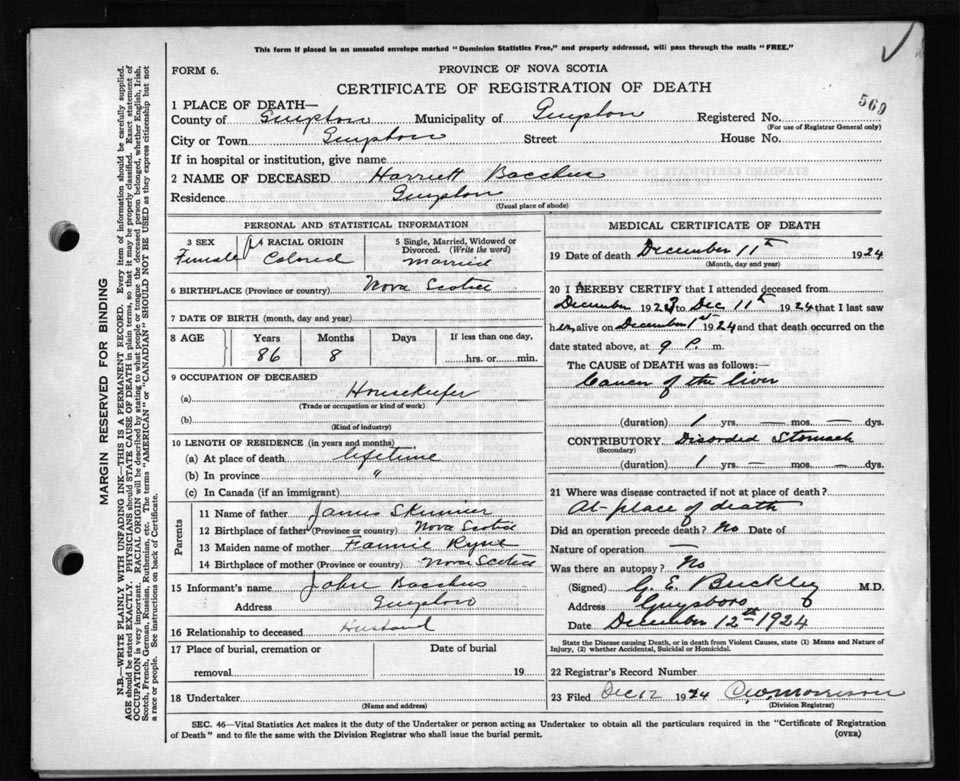 This form if placed in an unsealed envelope marked "Dominion Statistics Free," and properly addressed, will pass through the mails "FREE."
FORM 6. PROVINCE OF NOVA SCOTIA
CERTIFICATE OF REGISTRATION OF DEATH
569
1 PLACE OF DEATH—
County of Guysboro Municipality of Guysboro Registered No.
(For use of Registrar General only)
City or Town Guysboro Street House No.
If in hospital or institution, give name
2 NAME OF DECEASED Harriett Bacchus
Residence Guysboro
(Usual place of abode)
PERSONAL AND STATISTICAL INFORMATION
3 SEX 4 RACIAL ORIGIN 5 Single, Married, Widowed or Divorced. (Write the word)
Female Colored Married
6 BIRTHPLACE (Province or country) Nova Scotia
7 DATE OF BIRTH (month, day and year)
8 AGE Years Months Days If less than one day,
86 8 hrs. or min.
9 OCCUPATION OF DECEASED
(a) Housekeeper
(Trade or occupation or kind of work)
(b)
(Kind of industry)
10 LENGTH OF RESIDENCE (in years and months)
(a) At place of death lifetime
(b) In province "
(c) In Canada (if an immigrant)
Parents
11 Name of father James Skinner
12 Birthplace of father (Province or country) Nova Scotia
13 Maiden name of mother Fannie
14 Birthplace of mother (Province or country) Nova Scotia
15 Informant's name John Bacchus
Address Guysboro
16 Relationship to deceased Husband
17 Place of burial, cremation or removal Date of burial 19
18 Undertaker
(Name and address)
MEDICAL CERTIFICATE OF DEATH
19 Date of death December 11th 1924
(Month, day and year)
20 I HEREBY CERTIFY that I attended deceased from
December 1923 to Dec 11th 1924 that I last saw
her alive on December 1st 1924 and that death occurred on the
date stated above, at 9 P. m.
The CAUSE OF DEATH was as follows:—
Cancer of the liver
(duration) 1 yrs. — mos. — dys.
CONTRIBUTORY Disorded Stomach
(Secondary)
(duration) 1 yrs. — mos. — dys.
21 Where was disease contracted if not at place of death?
At place of death
Did an operation precede death? No Date of
Nature of operation —
Was there an autopsy? No
(Signed) G. E. Buckley M.D.
Address Guysboro
Date December 12th 1924
State the Disease causing Death, or in death from Violent Causes, state (1) Means and Nature of
Injury, (2) whether Accidental, Suicidal or Homicidal.
22 Registrar's Record Number
23 Filed Dec 12 1924 Morrison
(Division Registrar)
SEC. 46—Vital Statistics Act makes it the duty of the Undertaker or person acting as Undertaker to obtain all the particulars required in the "Certificate of Registration
of Death" and to file the same with the Division Registrar who shall issue the burial permit. (OVER)
MARGIN RESERVED FOR BINDING
N.B.—WRITE PLAINLY WITH UNFADING INK—THIS IS A PERMANENT RECORD. Every item of information should be carefully supplied.
AGE should be stated EXACTLY. PHYSICIANS should STATE CAUSE OF DEATH in plain terms, so that it may be properly classified. Exact statement of
OCCUPATION is very important. RACIAL ORIGIN will be described by stating to what people or tongue the deceased person belonged, whether English, Irish,
Scotch, French, German, Russian, Ruthenian, etc. The terms "AMERICAN" or "CANADIAN" SHOULD NOT BE USED as they express citizenship but not
a race or people. See instructions on back of Certificate.